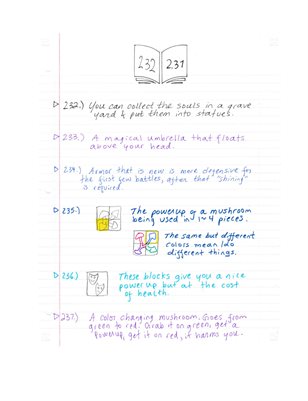 232 231
▷ 232.) You can collect the souls in a grave
yard & put them into statues.
▷ 233.) A magical umbrella that floats
above your head.
▷ 234.) Armor that is new is more defensive for
the first few battles, after that "shining"
is required.
▷ 235.) The powerup of a mushroom
being used in 1~4 pieces.
The same but different
colors mean
different things.
▷ 236.) These blocks give you a nice
power up but at the cost
of health.
▷ 237.) A color changing mushroom. Goes from
green to red. Grab it on green, get a
Powerup, get it on red, it harms you.